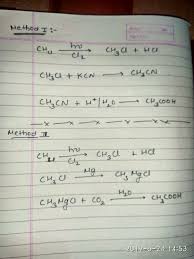 Method I :-
CH₄ —hν/Cl₂→ CH₃Cl + HCl
CH₃Cl + KCN ⟶ CH₃CN
CH₃CN + H⁺/H₂O ⟶ CH₃COOH
—x—x—x—x—x—x—
Method II
CH₄ —hν/Cl₂→ CH₃Cl + HCl
CH₃Cl —Mg→ CH₃MgCl
CH₃MgCl + CO₂ —H₂O→ CH₃COOH